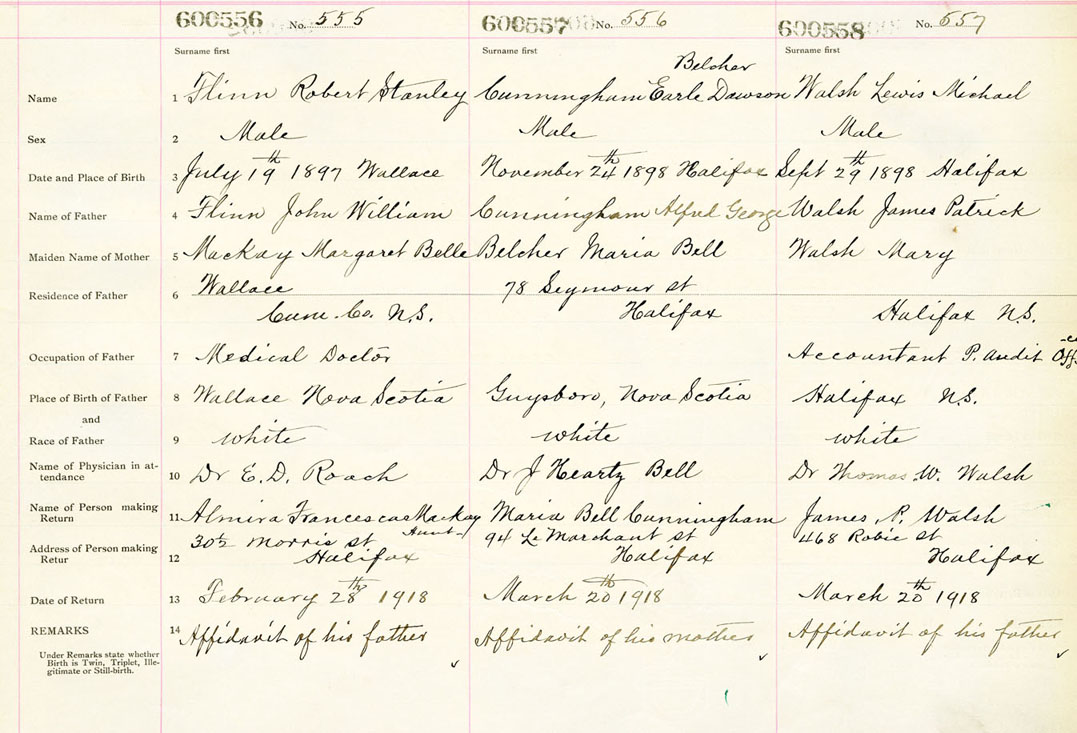 600556 No. 555 600557 No. 556 600558 No. 557
Surname first Surname first Surname first
Belcher
Name 1 Flinn Robert Stanley Cunningham Earle Dawson Walsh Lewis Michael
Sex 2 Male Male Male
Date and Place of Birth 3 July 19th 1897 Wallace November 24th 1898 Halifax Sept 29th 1898 Halifax
Name of Father 4 Flinn John William Cunningham Alfred George Walsh James Patrick
Maiden Name of Mother 5 MacKay Margaret Belle Belcher Maria Bell Walsh Mary
Residence of Father 6 Wallace 78 Seymour st
Cum. Co. N.S. Halifax Halifax N.S.
Occupation of Father 7 Medical Doctor Accountant P. Audit Off-ce
Place of Birth of Father 8 Wallace Nova Scotia Guysboro, Nova Scotia Halifax N.S.
and
Race of Father 9 white white white
Name of Physician in at-
tendance 10 Dr E. D. Roach Dr J Heartz Bell Dr Thomas W. Walsh
Name of Person making
Return 11 Almira Francesca MacKay Maria Bell Cunningham James P. Walsh
Aunt
Address of Person making 302 Morris st 94 Le Marchant st 468 Robie st
Retur 12 Halifax Halifax Halifax
Date of Return 13 February 28th 1918 March 20th 1918 March 20th 1918
REMARKS 14 Affidavit of his father Affidavit of his mother Affidavit of his father
Under Remarks state whether
Birth is Twin, Triplet, Ille-
gitimate or Still-birth.